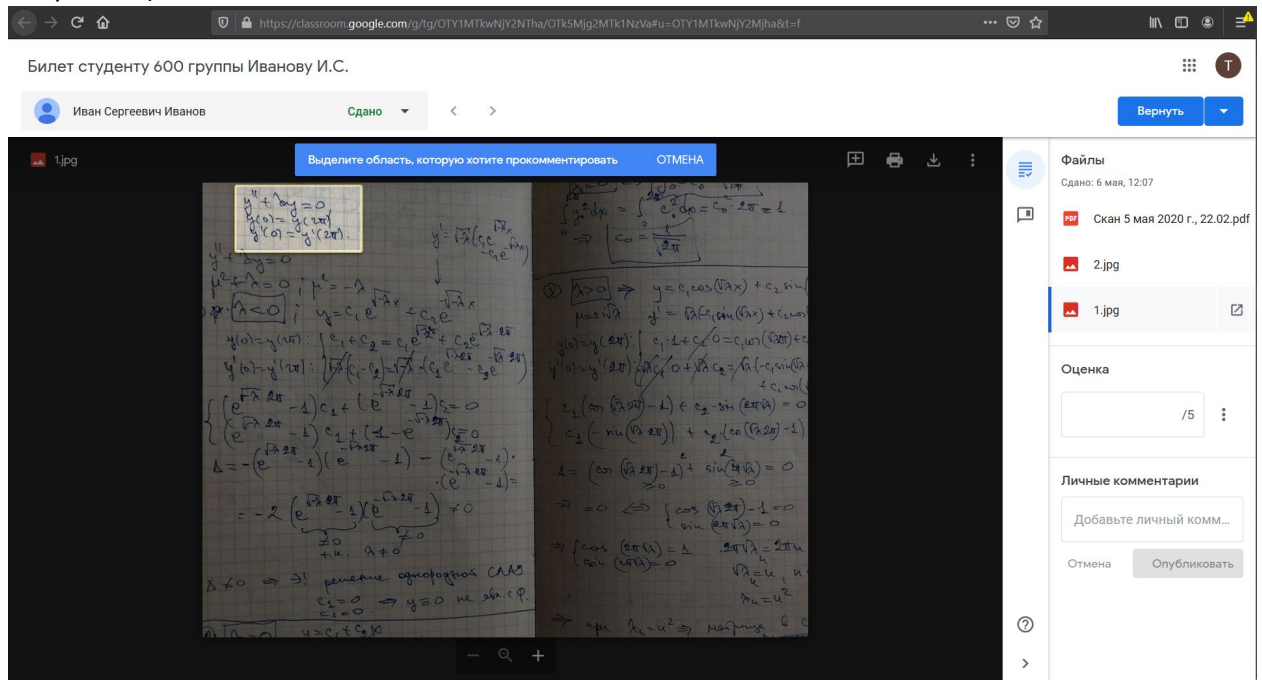 https://classroom.google.com/g/tg/OTY1MTkwNjY2NTha/OTk5Mjg2MTk1NzVa#u=OTY1MTkwNjY2Mjha&t=f
Билет студенту 600 группы Иванову И.С.
T
Иван Сергеевич Иванов
Сдано
Вернуть
1.jpg
Выделите область, которую хотите прокомментировать
ОТМЕНА
y'' + λy = 0
y(0) = y(2π)
y'(0) = y'(2π).
y'' + λy = 0
μ² + λ = 0 ; μ² = -λ
λ<0 ; y = c₁e^{√-λx} + c₂e^{-√-λx}
y(0)=y(2π): { c₁+c₂ = c₁e^{√-λ2π} + c₂e^{-√-λ2π}
y'(0)=y'(2π):
{ (e^{√-λ2π} - 1)c₁ + (e^{-√-λ2π} - 1)c₂ = 0
(e^{√-λ2π} - 1)c₁ + (1 - e^{-√-λ2π})c₂ = 0
Δ = -(e^{√-λ2π} - 1)(e^{-√-λ2π} - 1) - (e^{√-λ2π} - 1)·
·(e^{-√-λ2π} - 1) =
= -2 (e^{√-λ2π} - 1)(e^{-√-λ2π} - 1) ≠ 0
≠0 ≠0
т.к. λ≠0
Δ ≠ 0 ⇒ ∃! решение однородной СЛАУ
c₁=0
c₂=0 ⇒ y≡0 не явл. с.ф.
λ=0 y=c₁+c₂x
∫y₀²dx = ∫c₀²dx = c₀²·2π = 1
⇒ c₀ = 1/√2π
λ>0 ⇒ y = c₁cos(√λx) + c₂sin(
y' = √λ(-c₁sin(√λx) + c₂cos
y(0)=y(2π): { c₁·1+c₂·0 = c₁cos(√λ2π)+c
y'(0)=y'(2π):
{ c₁(cos(√λ2π)-1) + c₂·sin(2π√λ) = 0
c₁(-sin(√λ2π)) + c₂·(cos(√λ2π)-1)
Δ = (cos(√λ2π)-1)² + sin²(2π√λ) = 0
≥0 ≥0
⇒ =0 ⇔ { cos(√λ2π)-1=0
sin(2π√λ)=0
⇒ { cos(2π√λ) = 1 2π√λ = 2πn
sin(2π√λ) = 0
√λₙ = n, n
λₙ = n²
⇒ при λₙ=n² ⇒ матрица
Файлы
Сдано: 6 мая, 12:07
PDF
Скан 5 мая 2020 г., 22.02.pdf
2.jpg
1.jpg
Оценка
/5
Личные комментарии
Добавьте личный комм...
Отмена
Опубликовать